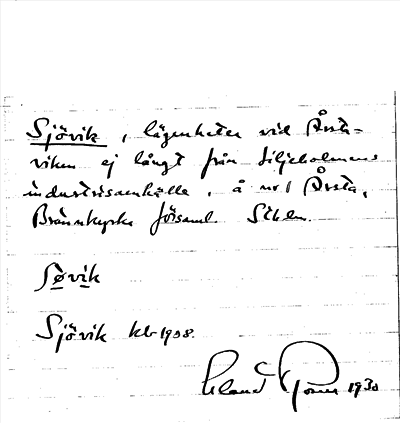 Sjövik, lägenheter vid Årsta-
viken ej långt från Liljeholmens
industrisamhälle, å nr 1 Årsta,
Brännkyrka församl. Sthlm.
Søvik
Sjövik kb 1908.
Erland 1930